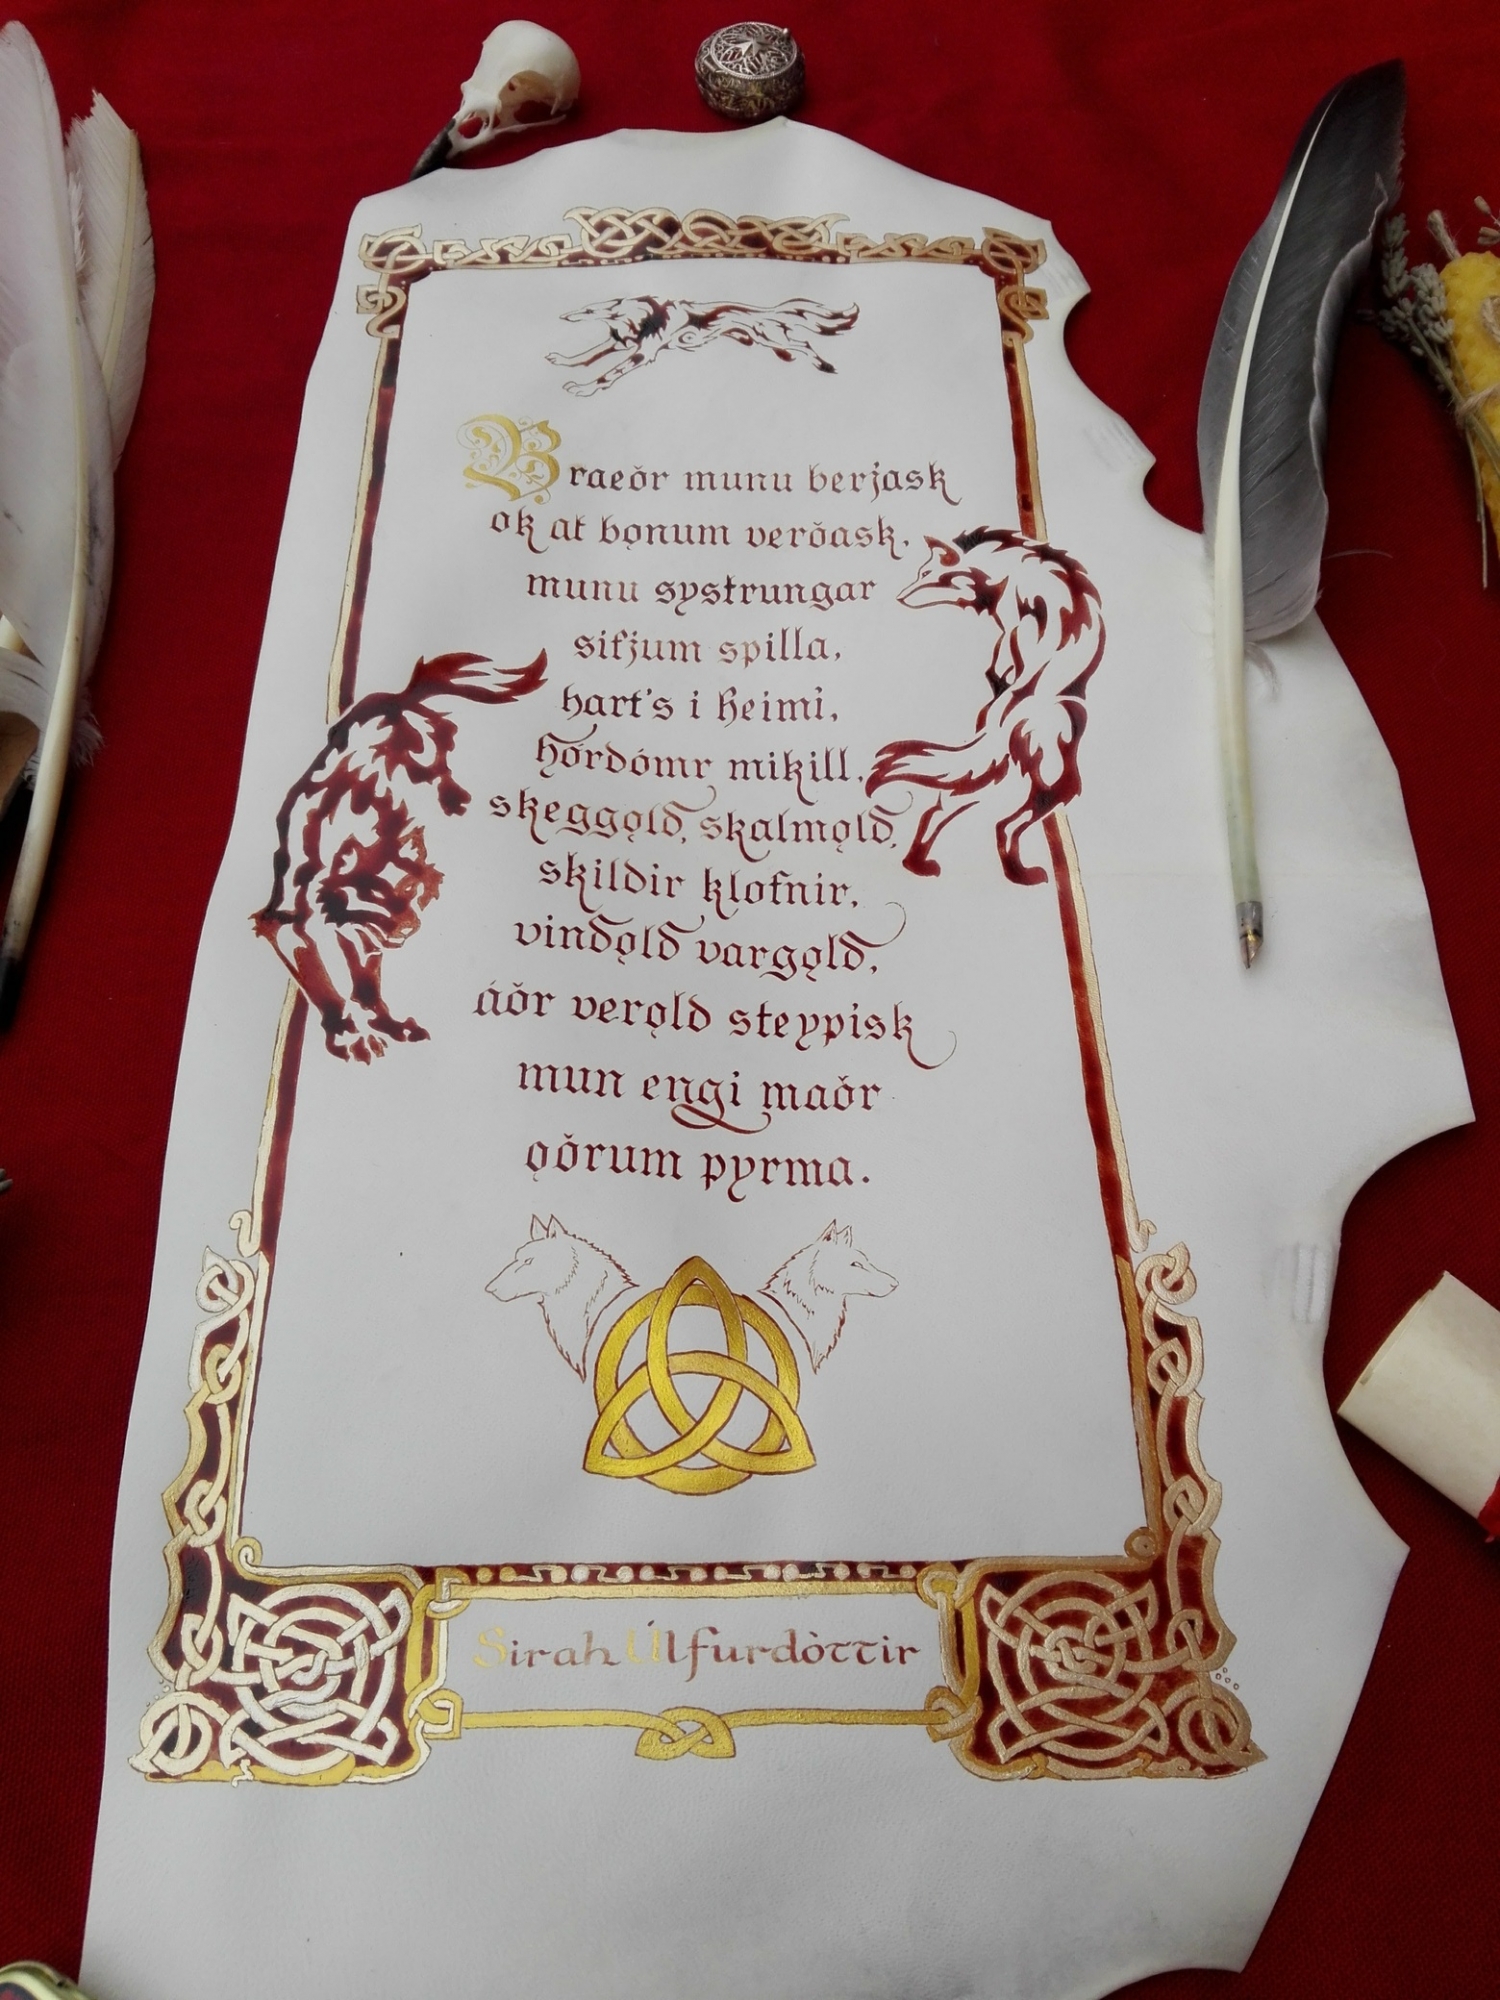 Braeðr munu berjask
ok at bǫnum verðask,
munu systrungar
sifjum spilla,
hart's i heimi,
hórdómr mikill,
skeggǫld, skalmǫld,
skildir klofnir,
vindǫld vargǫld,
áðr verǫld steypisk
mun engi maðr
ǫðrum pyrma.
Sirah Úlfurdòttir